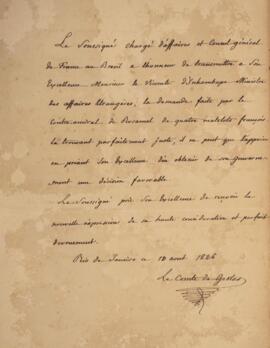 Le Soussigné chargé d'affaires et Consul-général
de France au Brésil a l'honneur de transmettre à Son
Excellence Monsieur le Vicomte d'Inhambupe Ministre
des affaires étrangères, la demande faite par le
Contre-amiral de Rosamel de quatre matelots français
la trouvant parfaitement juste, il ne peut que l'appuyer
en priant Son Excellence d'en obtenir de son Gouverne-
ment une décision favorable.
Le Soussigné prie Son Excellence de recevoir la
nouvelle expression de sa haute considération et parfait
dévouement.
Rio de Janeiro ce 10 août 1826
Le Comte de Gestas